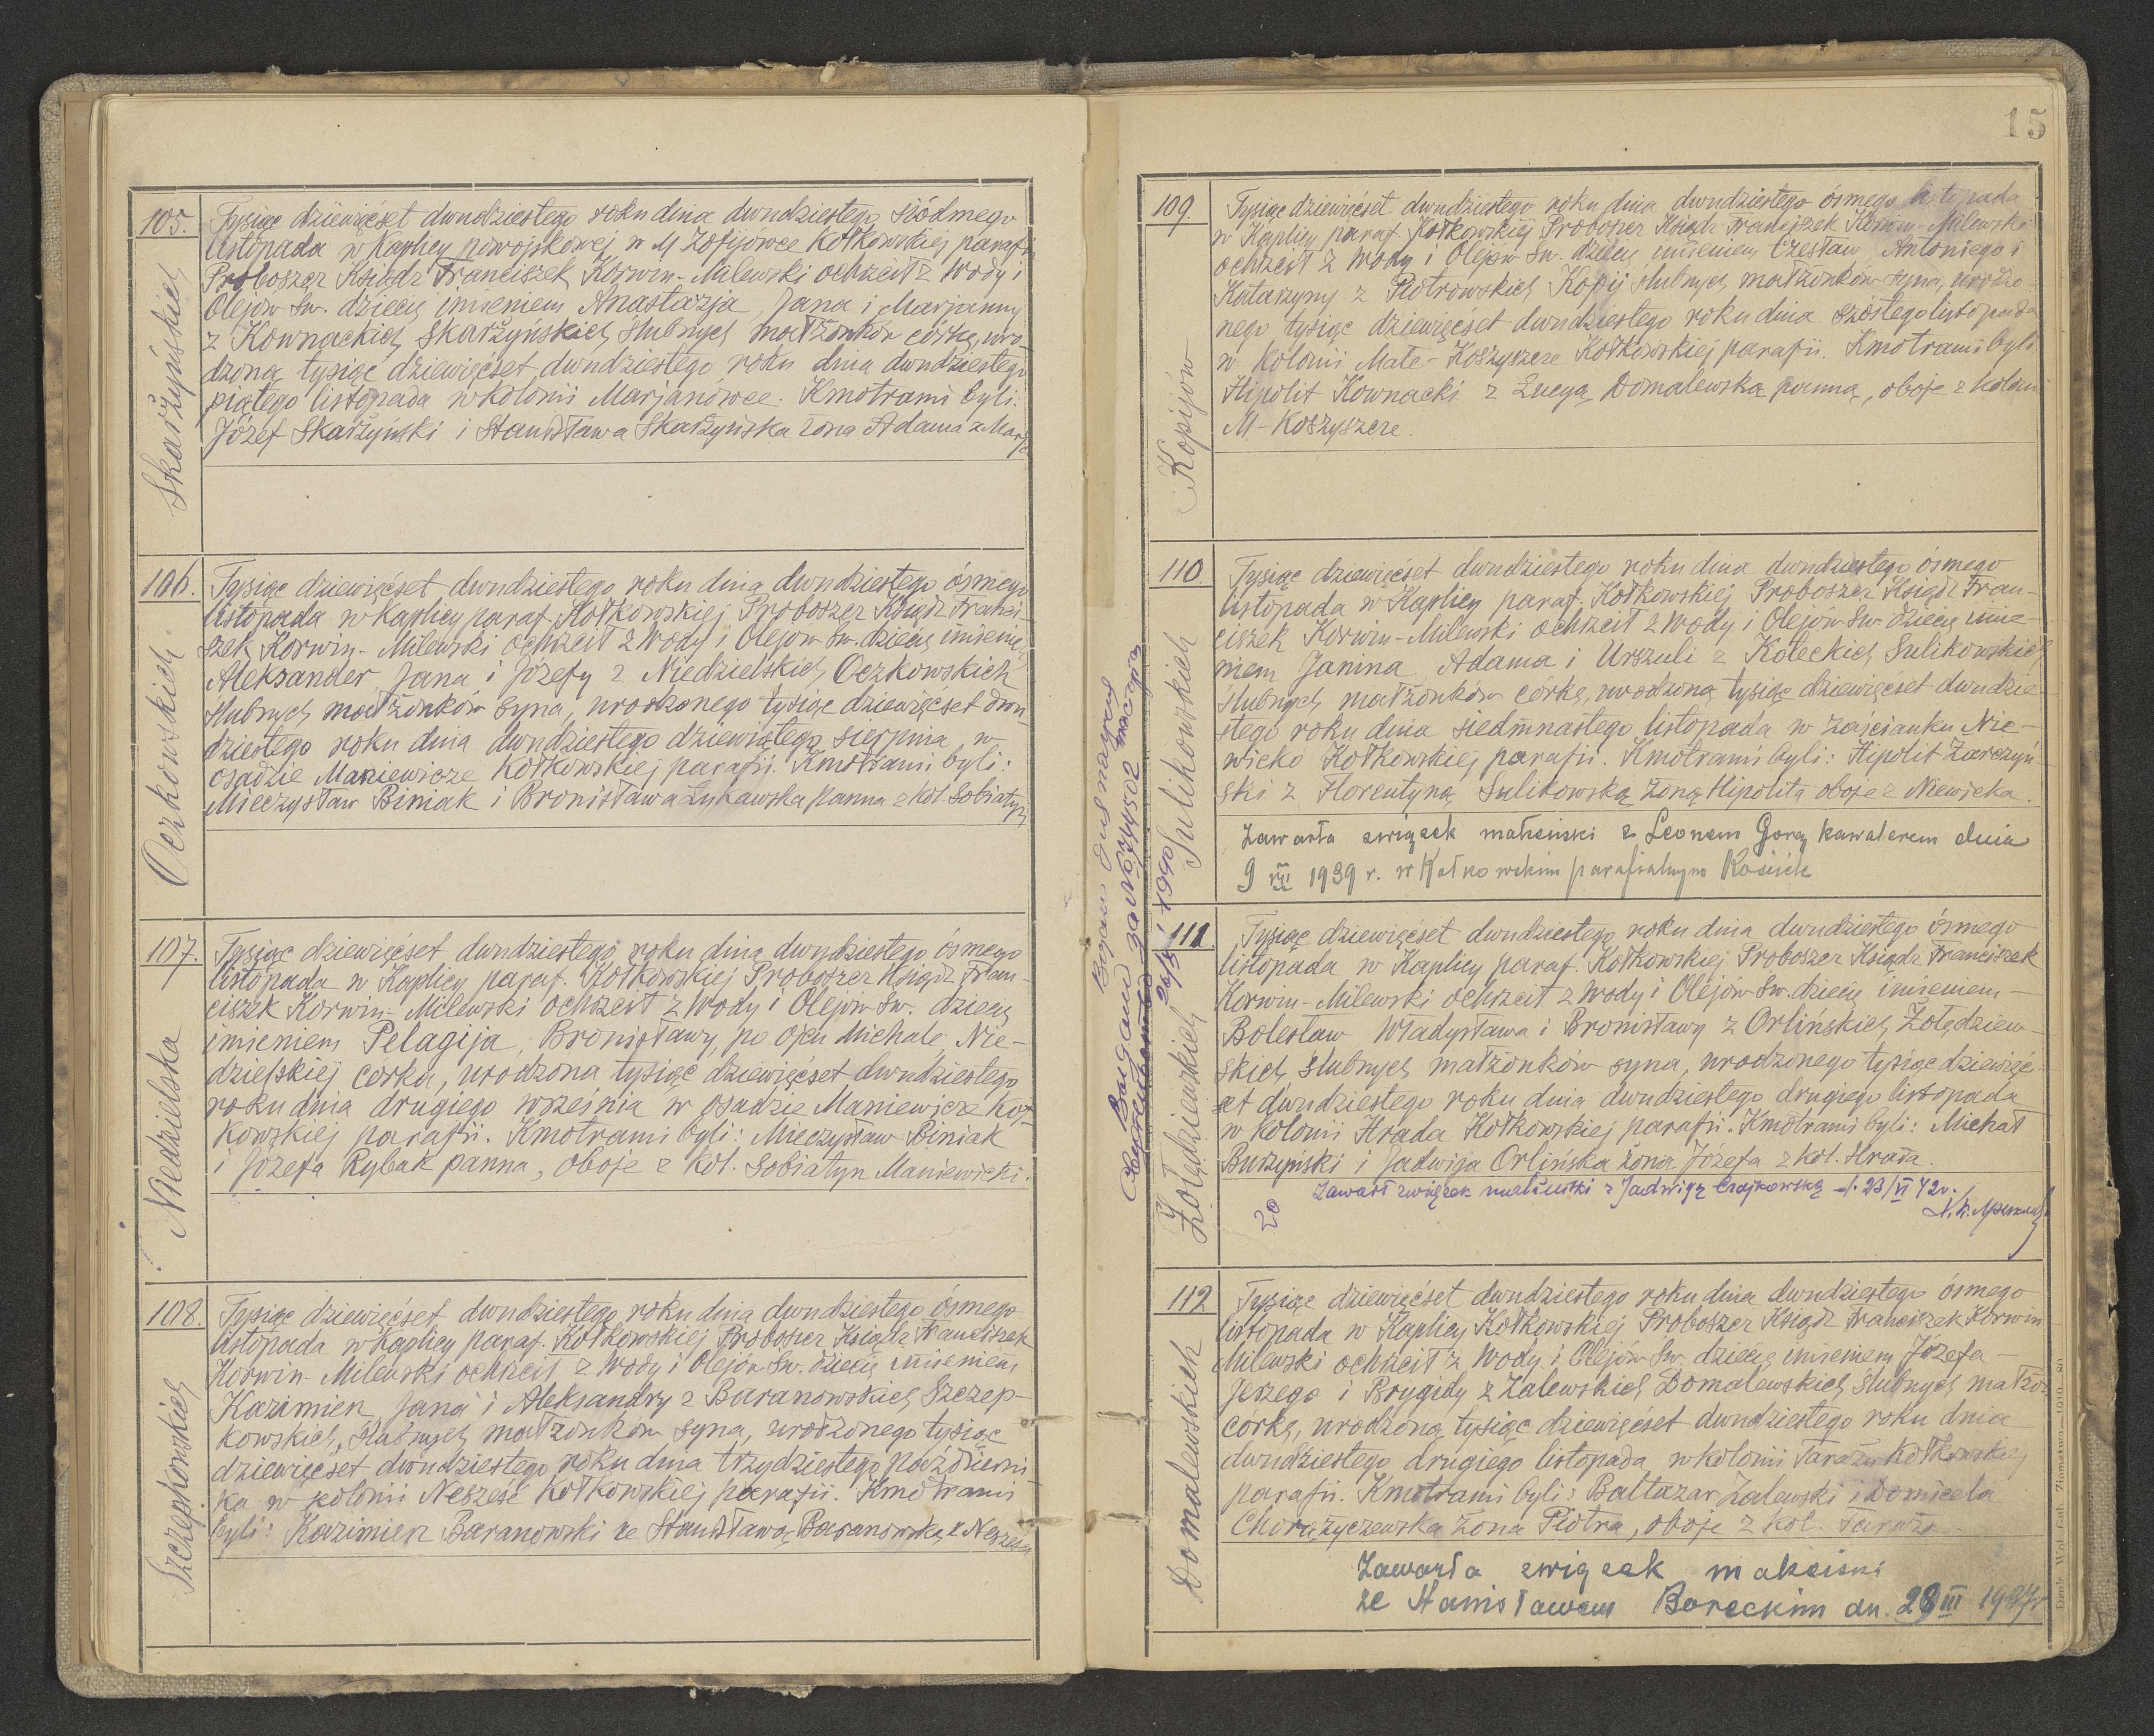 105.
Skarżyńskich
Tysiąc dziewięćset dwudziestego roku dnia dwudziestego siódmego
listopada w Kaplicy powojskowej w M Zofijówce Kołkowskiej parafii
Proboszcz Ksiądz Franciszek Korwin-Milewski ochrzcił z Wody i
Olejów Św. dziecię imieniem Anastazja, Jana i Marjanny
z Kownackich Skarżyńskich ślubnych małżonków córkę, uro-
dzoną tysiąc dziewięćset dwudziestego roku dnia dwudziestego
piątego listopada w kolonii Marjanówce. Kmotrami byli:
Józef Skarżyński i Stanisława Skarżyńska żona Adama z Marj.
106.
Oczkowskich
Tysiąc dziewięćset dwudziestego roku dnia dwudziestego ósmego
listopada w Kaplicy paraf. Kołkowskiej Proboszcz Ksiądz Franci-
szek Korwin-Milewski ochrzcił z Wody i Olejów Św. dziecię imieniem
Aleksander Jana i Józefy z Niedzielskich Oczkowskich
ślubnych małżonków syna, urodzonego tysiąc dziewięćset dwu-
dziestego roku dnia dwudziestego dziewiątego sierpnia w
osadzie Maniewicze Kołkowskiej parafii. Kmotrami byli:
Mieczysław Biniak i Bronisława Żukawska panna z kol. Sobiatyn
107.
Niedzielska
Tysiąc dziewięćset dwudziestego roku dnia dwudziestego ósmego
listopada w Kaplicy paraf. Kołkowskiej Proboszcz Ksiądz Fran-
ciszek Korwin-Milewski ochrzcił z Wody i Olejów Św. dziecię
imieniem Pelagija, Bronisławy, po ojcu Michale, Nie-
dzielskiej córka, urodzona tysiąc dziewięćset dwudziestego
roku dnia drugiego września w osadzie Maniewicze Koł-
kowskiej parafii. Kmotrami byli: Mieczysław Biniak
i Józefa Rybak panna, oboje z kol. Sobiatyn Maniewicki.
108.
Szczepkowskich
Tysiąc dziewięćset dwudziestego roku dnia dwudziestego ósmego
listopada w Kaplicy paraf. Kołkowskiej Proboszcz Ksiądz Franciszek
Korwin-Milewski ochrzcił z Wody i Olejów Św. dziecię imieniem
Kazimierz Jana i Aleksandry z Baranowskich Szczep-
kowskich, ślubnych małżonków syna, urodzonego tysiąc
dziewięćset dwudziestego roku dnia trzydziestego październi-
ka w kolonii Nesześć Kołkowskiej parafii. Kmotrami
byli: Kazimierz Baranowski ze Stanisławą Baranowską z Nesześć
15
109.
Kopijów
Tysiąc dziewięćset dwudziestego roku dnia dwudziestego ósmego listopada
w Kaplicy paraf. Kołkowskiej Proboszcz Ksiądz Franciszek Korwin-Milewski
ochrzcił z Wody i Olejów Św. dziecię imieniem Czesław, Antoniego i
Katarzyny z Piotrowskich Kopij ślubnych małżonków syna, urodzo-
nego tysiąc dziewięćset dwudziestego roku dnia szóstego listopada
w kolonii Małe-Koszyszcze Kołkowskiej parafii. Kmotrami byli:
Hipolit Kownacki z Lucyą Domalewską panną, oboje z kolonii
M-Koszyszcze.
110
Sulikowskich
Tysiąc dziewięćset dwudziestego roku dnia dwudziestego ósmego
listopada w Kaplicy paraf. Kołkowskiej Proboszcz Ksiądz Fran-
ciszek Korwin-Milewski ochrzcił z Wody i Olejów Św. dziecię imie-
niem Janina Adama i Urszuli z Koteckich Sulikowskich
ślubnych małżonków córkę, urodzoną tysiąc dziewięćset dwudzie-
stego roku dnia siedmnastego listopada w zaścianku Nie-
wieko Kołkowskiej parafii. Kmotrami byli: Hipolit Zarczyń-
ski z Florentyną Sulikowską żoną Hipolita oboje z Niewieka.
Zawarła związek małżeński z Leonem Gorą kawalerem dnia
9 VII 1939 r. w Kołkowskim parafialnym Kościele
111.
Żołędziewskich
Tysiąc dziewięćset dwudziestego roku dnia dwudziestego ósmego
listopada w Kaplicy paraf. Kołkowskiej Proboszcz Ksiądz Franciszek
Korwin-Milewski ochrzcił z Wody i Olejów Św. dziecię imieniem
Bolesław Władysława i Bronisławy z Orlińskich Żołędziew-
skich ślubnych małżonków syna, urodzonego tysiąc dziewięć-
set dwudziestego roku dnia dwudziestego drugiego listopada
w kolonii Hrada Kołkowskiej parafii. Kmotrami byli: Michał
Burzyński i Jadwiga Orlińska żona Józefa z kol. Hrada.
Zawarł związek małżeński z Jadwigą Czajkowską d. 23/VI 42 r.
20
112
Domalewskich
Tysiąc dziewięćset dwudziestego roku dnia dwudziestego ósmego
listopada w Kaplicy Kołkowskiej Proboszcz Ksiądz Franciszek Korwin
Milewski ochrzcił z Wody i Olejów Św. dziecię imieniem Józefa
Jerzego i Brygidy z Zalewskich Domalewskich ślubnych małżon.
córkę, urodzoną tysiąc dziewięćset dwudziestego roku dnia
dwudziestego drugiego listopada w kolonii Taraż Kołkowskiej
parafii. Kmotrami byli: Baltazar Zalewski i Domicela
Chorążyczewska żona Piotra, oboje z kol. Taraż.
Zawarła związek małżeński
ze Stanisławem Boreckim dn. 28 III 1937 r